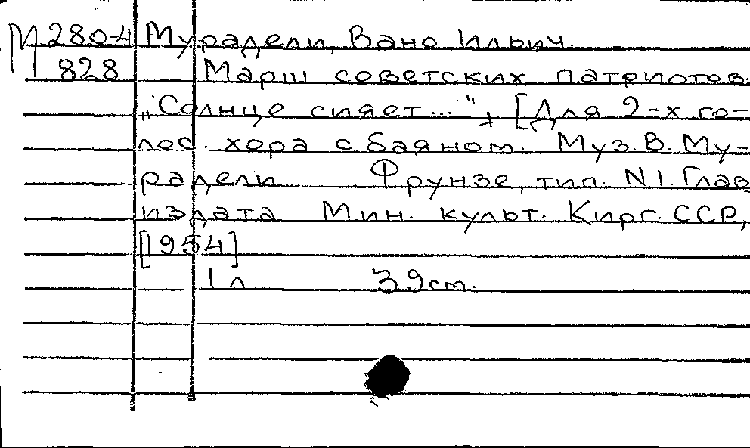 М 2804 Мурадели, Вано Ильич
828 Марш советских патриотов.
„Солнце сияет...", [Для 2-х го-
лос. хора с баяном. Муз. В. Му-
радели. Фрунзе, тип. N1. Глав
издата Мин. культ. Кирг. ССР,
[1954]
1 л 39 см.